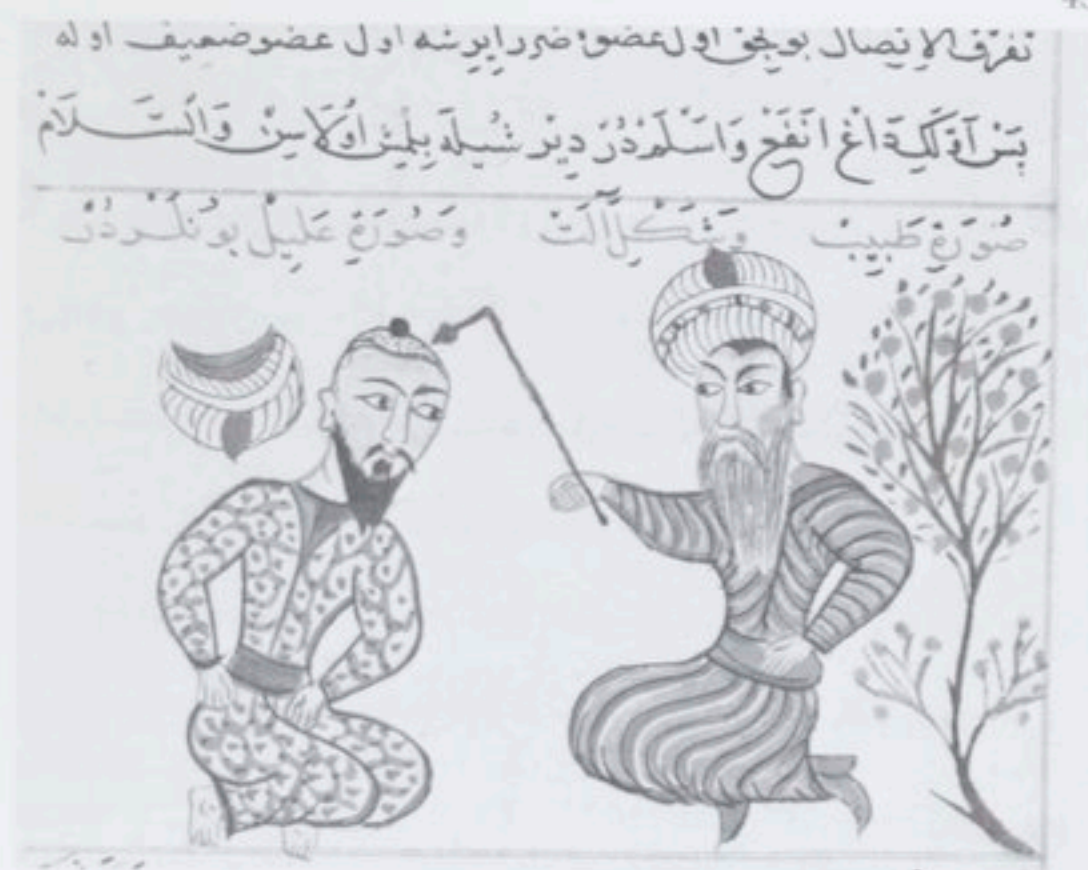 تفرق الاتصال بوجق اول عضوه ضرر ایرشه اول عضو ضعیف اوله
بَسْ اَوَّلَکِی دَاغْ اَنْفَعْ وَاَسْلَمْدُرْ دِیرْ شُیلَه بِلْمِشْ اُولَاسِنْ وَالسَّلَامْ
صُورَةِ طَبِیبْ وَشَکْلِ آلَتْ وَصُورَةِ عَلِیلْ بُونْلَرْدُرْ